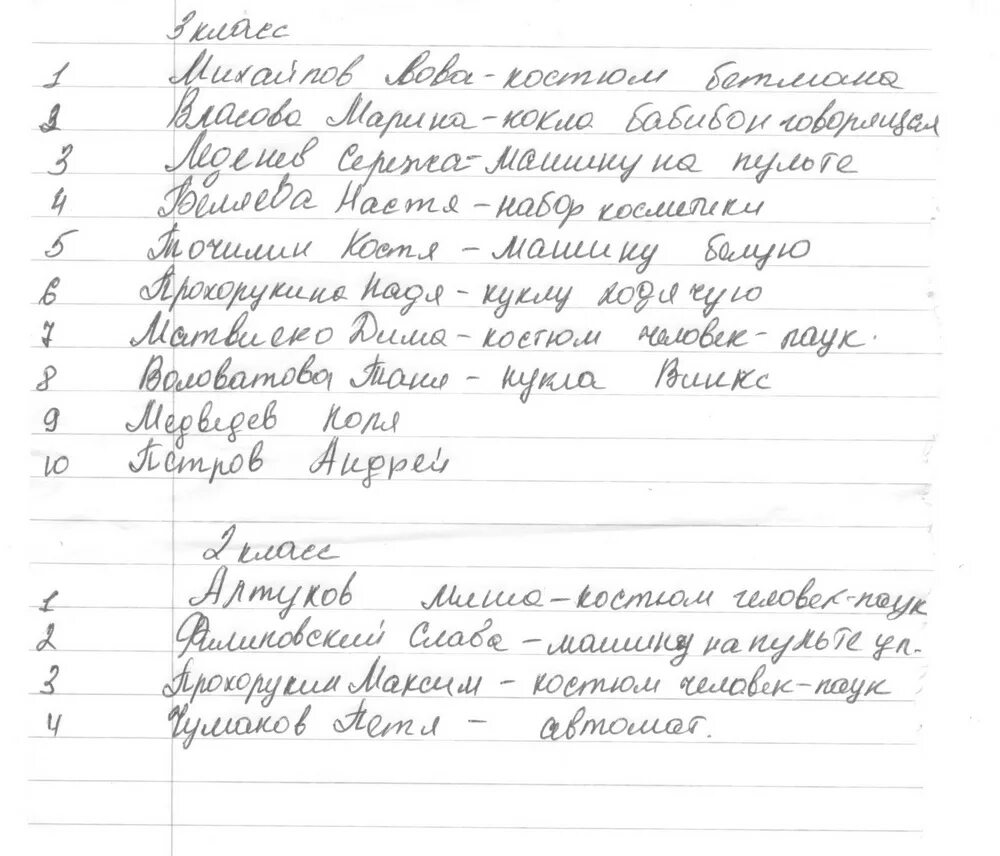 3 класс
1 Михайлов Вова - костюм бетмана
2 Власова Марина - кокла бабибон говорящая
3 Леденев Сережа - машину на пульте
4 Беляева Настя - набор косметики
5 Точилин Костя - машину белую
6 Прохорукина Надя - куклу ходячую
7 Матвиеко Дима - костюм человек-паук.
8 Воловатова Таня - кукла Винкс
9 Медведев Коля
10 Петров Андрей
2 класс
1 Алтухов Миша - костюм человек-паук
2 Филиповский Слава - машину на пульте уп.
3 Прохорукин Максим - костюм человек-паук
4 Чумаков Петя - автомат.